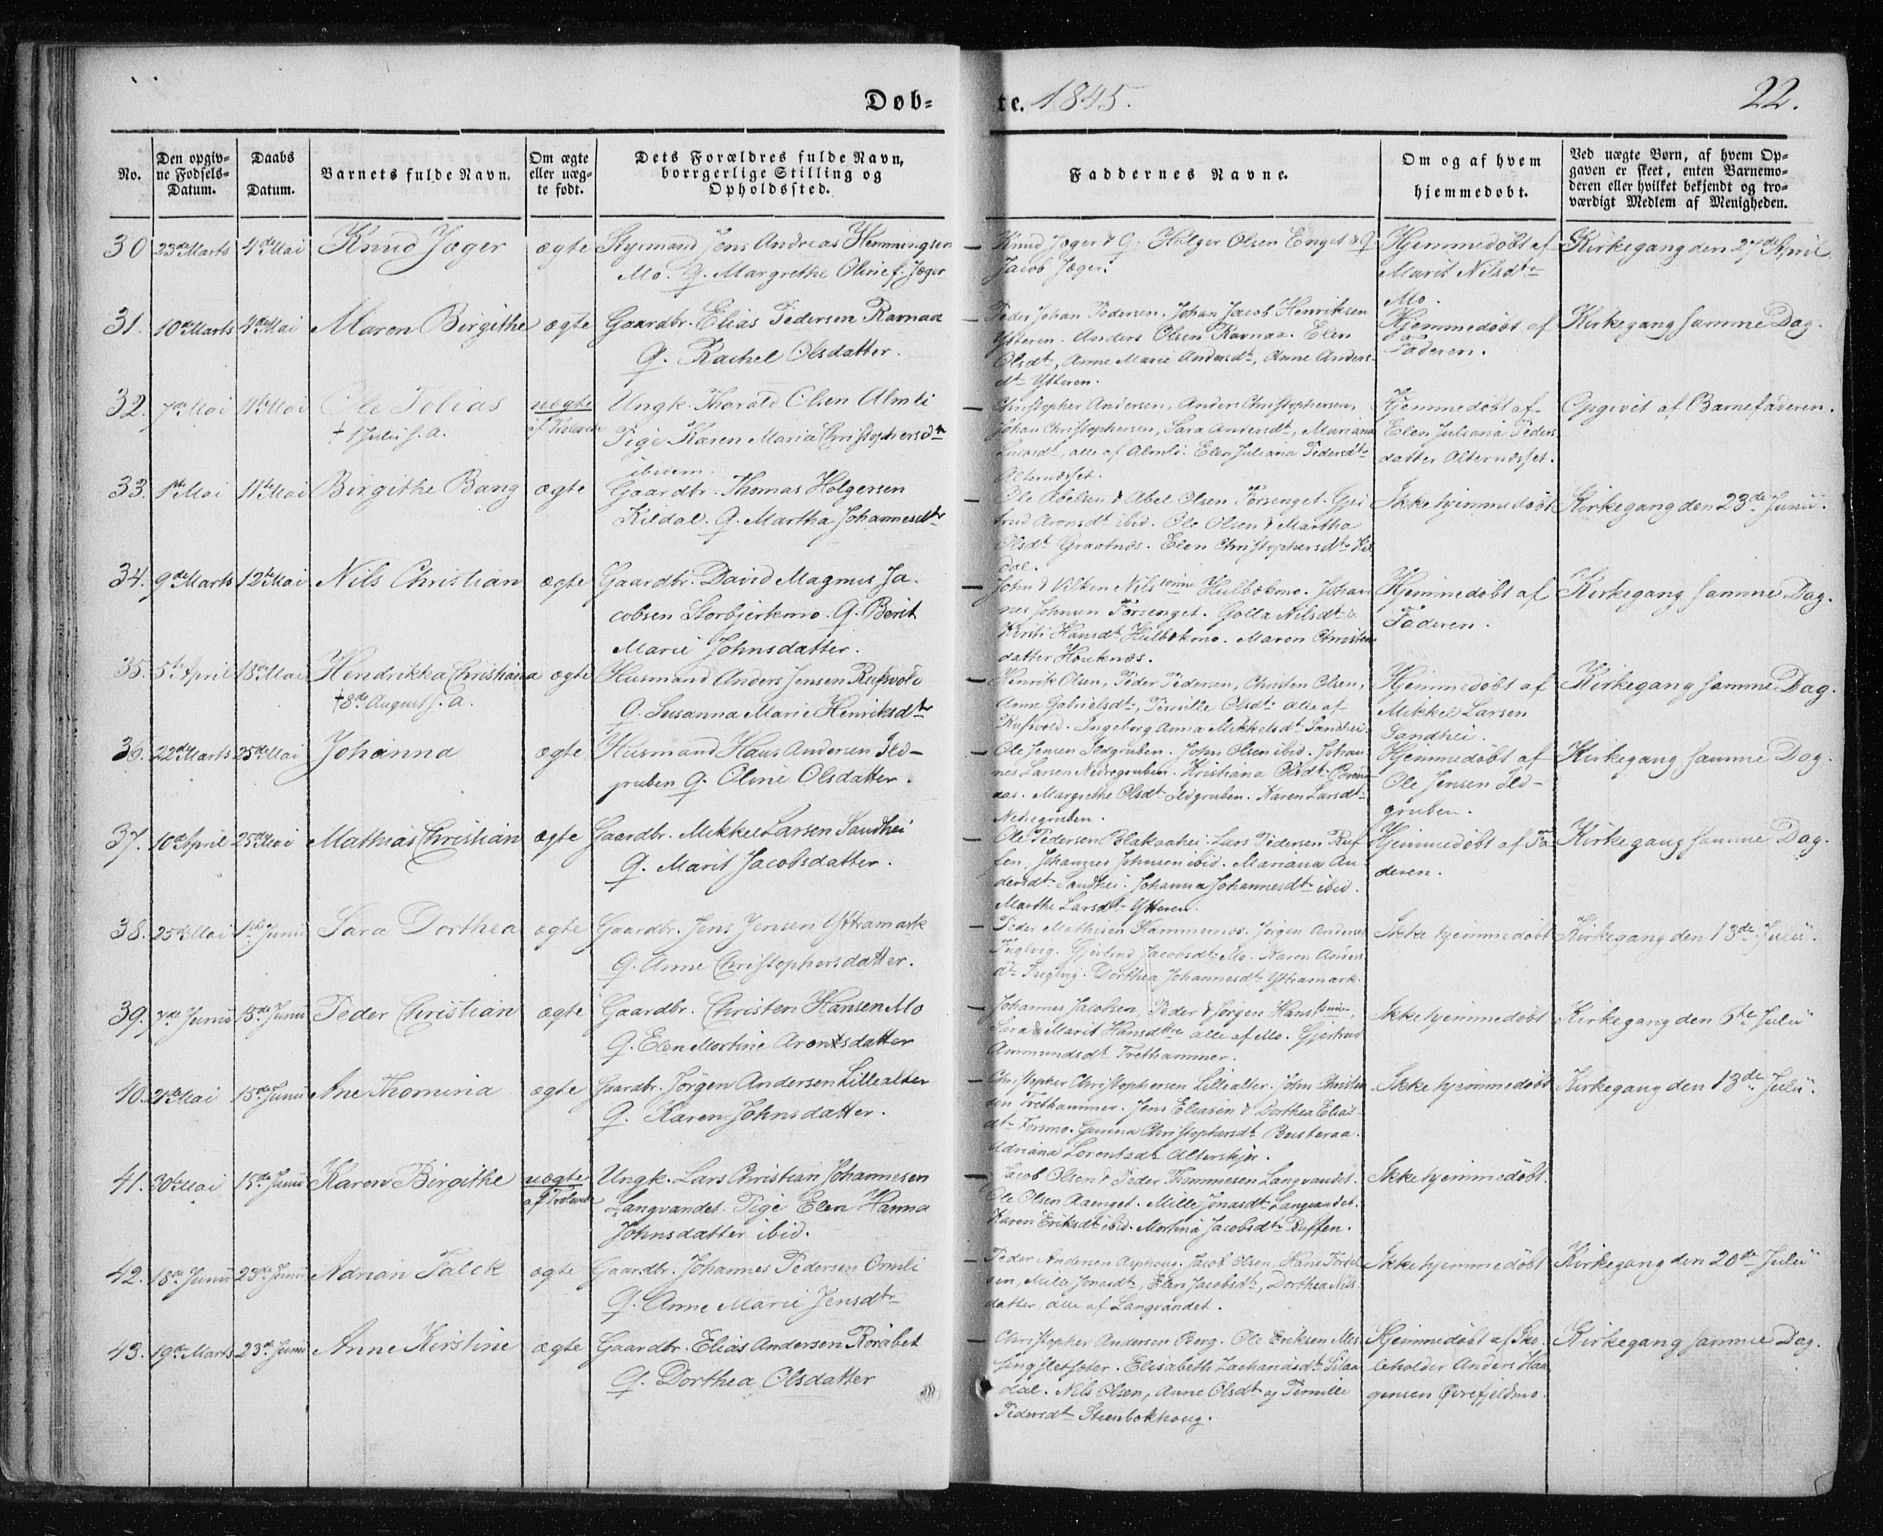 Døb- te. 1845. 22.
No.
Den opgiv-
ne Fødsels-
Datum.
Daabs
Datum.
Barnets fulde Navn.
Om ægte
eller uæg-
te født.
Dets Forældres fulde Navn,
borrgerlige Stilling og
Opholdssted.
Faddernes Navne.
Om og af hvem
hjemmedøbt.
Ved uægte Børn, af hvem Op-
gaven er skeet, enten Barnemo-
deren eller hvilket bekjendt og tro-
værdigt Medlem af Menigheden.
30 23de Marts 4de Mai Knud Jæger ægte Styrmand Jens Andreas Hemmingsen
Mo. Q. Margrethe Oline f. Jæger
Knud Jæger & Q. Holger Olsen Enget & Q.
Jacob Jæger.
Hjemmedøbt af
Marit Nilsdtr
Mo.
Kirkegang den 27de April.
31. 10de Marts 4de Mai Maren Birgithe ægte Gaardbr. Elias Pedersen Ravnaa
Q. Rachel Olsdatter.
Peder Johan Pedersen, Johan Jacob Henriksen
Ytteren. Anders Olsen Ravnaa. Elen
Olsdt, Anne Marie Andersdt, Anne Anders-
dt Ytteren.
Hjemmedøbt af
Faderen.
Kirkegang samme Dag.
32. 7de Mai 11te Mai Ole Tobias
† 1 Julii s. a.
uægte
Ungk. Thorald Olsen Almli
Pige Karen Maria Christophersdtr
ibidem.
Christopher Andersen, Anders Christophersen,
Johan Christophersen, Sara Andersdt, Mariana
alle af Almli. Elen Juliana Pedersdtr
Alternæsset.
Hjemmedøbt af
Elen Juliana Peders
datter Alternæsset.
Opgivet af Barnefaderen.
33. 1ste Mai 11te Mai Birgithe Bang ægte Gaardbr. Thomas Holgersen
Kildal. Q. Martha Johannesdtr
Ole Abelsen & Abel Olsen Forsenget. Gjer
trud Aronsdt ibid. Ole Olsen & Martha
Olsdt Graatnæs. Elen Christophersdt Kil
dal.
Ikke hjemmedøbt Kirkegang den 23de Junii.
34. 9de Marts 12te Mai Nils Christian ægte Gaardbr. David Magnus Ja-
cobsen Storbjerkmo. Q. Berit
Marie Johnsdatter.
John & Vilken Nilssønner Hulbækmo. Johan
nes Johnsen Forsenget. Golla Nilsdt &
Kirsti Hansdt Hulbækmo. Maren Christens
datter Houknæs.
Hjemmedøbt af
Faderen.
Kirkegang samme Dag.
35. 5te April 18de Mai Hendrikka Christiana
† 8de August s. a.
ægte Husmand Anders Jensen Rufsvold
Q. Susanna Marie Henriksdtr
Henrik Olsen, Peder Pedersen, Christen Olsen,
Anne Gabrielsdt, Pernille Olsdt alle af
Rufsvold. Ingeborg Anna Mikkelsdt Sandhei.
Hjemmedøbt af
Mikkel Larsen
Sandhei.
Kirkegang samme Dag.
36. 22de Marts 25de Mai Johanna ægte Husmand Hans Andersen Ild-
gruben Q. Oline Olsdatter.
Ole Jensen Ildgruben. John Olsen ibid. Johan
nes Larsen Nedregruben. Kristiana Olsdt
Margrethe Olsdt Ildgruben. Karen Larsdt
Nedregruben.
Hjemmedøbt af
Ole Jensen Ild-
gruben.
Kirkegang samme Dag.
37. 10de April 25de Mai Mathias Christian ægte Gaardbr. Mikkel Larsen Sandhei
Q. Marit Jacobsdatter.
Ole Pedersen Blakaahei. Lars Pedersen Ruf
fen, Johannes Johnsen ibid. Mariana An
dersdt Sandhei. Johanna Johannesdt ibid.
Marthe Larsdt Ytteren.
Hjemmedøbt af Fa
deren.
Kirkegang samme Dag.
38. 25de Mai 1ste Junii Sara Dorthea ægte Gaardbr. Jens Jensen Yttramark
Q. Anne Christophersdatter.
Peder Mathisen Kammernes. Jørgen Anders
Gjertrud Jacobsdt Mo. Karen Anders
dt Dorthea Johannesdt Yttramark.
Ikke hjemmedøbt Kirkegang den 13de Julii.
39. 3de Junii 15de Junii Peder Christian ægte Gaardbr. Christen Hansen Mo
Q. Elen Martine Aronsdatter
Johannes Jacobsen, Peder & Jørgen Hanssønner,
Sara & Marit Hansdtre alle af Mo. Gjertrud
Ammundsdt Frethammer.
Ikke hjemmedøbt Kirkegang den 6te Julii
40. 21de Mai 15de Junii Ane Thomina ægte Gaardbr. Jørgen Andersen Lillealter
Q. Karen Johnsdatter.
Christopher Christophersen Lillealter. John Christen
sen Frethammer. Jens Eliasen & Dorthea Elias
dt Forsmo. Gurina Christophersdt Busteraa.
Adriana Lorentsdt Alterskjær.
Ikke hjemmedøbt Kirkegang den 13de Julii.
41. 30te Mai 15de Junii Karen Birgithe uægte
Ungk. Lars Christian Johannesen
Langvandet. Pige Elen Hanna
Johnsdatter ibid.
Jacob Olsen & Peder Thommesen Langvandet.
Ole Olsen Aaenget. Mille Jonasdt Langvandet.
Karen Eriksdt ibid. Martina Jacobsdt Ruffen.
Ikke hjemmedøbt.
42. 18de Junii 23de Junii Adrian Falck ægte Gaardbr. Johannes Pedersen Ormli
Q. Anne Marie Jensdtr
Peder Andersen Asphoug. Jacob Olsen, Hans
sen, Mille Jonasdt, Elen Jacobsdt, Dorthea Nils
datter, alle af Langvandet.
Ikke hjemmedøbt Kirkegang den 20de Julii
43. 19de Marts 23de Junii Anne Kirstine ægte Gaardbr. Elias Andersen Rørabet
Q. Dorthea Olsdatter
Christopher Andersen Berg. Ole Eriksen Mes
singsletfoter. Elisabeth Zachariasdt Silaa
dal. Nils Olsen, Anne Olsdt og Pernille
Pedersdt Steenbokhoug.
Hjemmedøbt af Sko
leholder Anders Haa
gensen Øvrefjeldmo.
Kirkegang samme Dag.